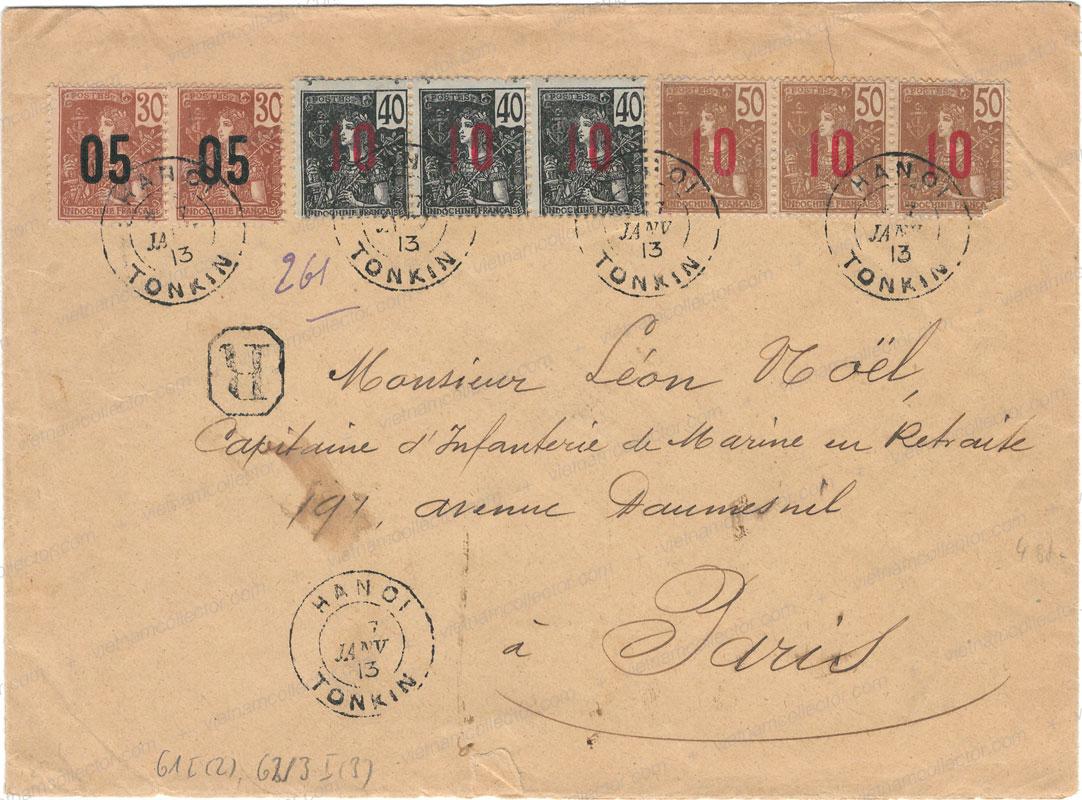 POSTES 30 POSTES 30 POSTES 40 POSTES 40 POSTES 40 POSTES 50 POSTES 50 POSTES 50
05 05 10 10 10 10 10 10
INDOCHINE FRANÇAISE INDOCHINE FRANÇAISE INDOCHINE FRANÇAISE INDOCHINE FRANÇAISE INDOCHINE FRANÇAISE INDOCHINE FRANÇAISE INDOCHINE FRANÇAISE INDOCHINE FRANÇAISE
HANOI
13
TONKIN
HANOI
13
TONKIN
JANV
13
TONKIN
HANOI
JANV
13
TONKIN
261
R
Monsieur Léon Noël,
Capitaine d'Infanterie de Marine en Retraite
191, avenue Daumesnil
à Paris
HANOI
7
JANV
13
TONKIN
61 I (2), 62/3 I (3)
vietnamcollector.com